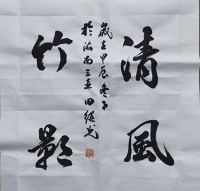 清風
竹影
歲在甲辰冬月
於海南三亞田继光